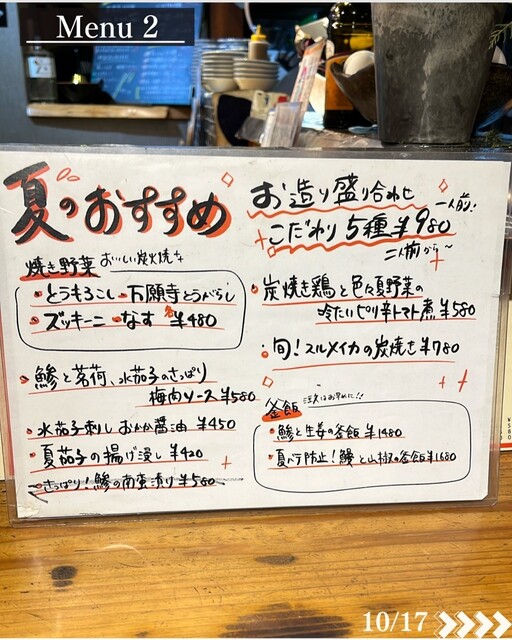 Menu 2
夏のおすすめ
焼き野菜 おいしい炭火焼き
・とうもろこし ・万願寺とうがらし
・ズッキーニ ・なす 各¥480
・鯵と茗荷、水茄子のさっぱり
梅肉ソース ¥580
・水茄子刺し おかか醤油 ¥450
・夏茄子の揚げ浸し ¥420
・さっぱり!鯵の南蛮漬け ¥580
お造り盛り合わせ 一人前!
こだわり5種¥980
二人前から〜
・炭焼き鶏と色々夏野菜の
冷たいピリ辛トマト煮 ¥580
・旬!スルメイカの炭焼き ¥780
釜飯 注文はお早めに!!
・鯵と生姜の釜飯 ¥1480
・夏バテ防止!鰻と山椒の釜飯¥1680
10/17